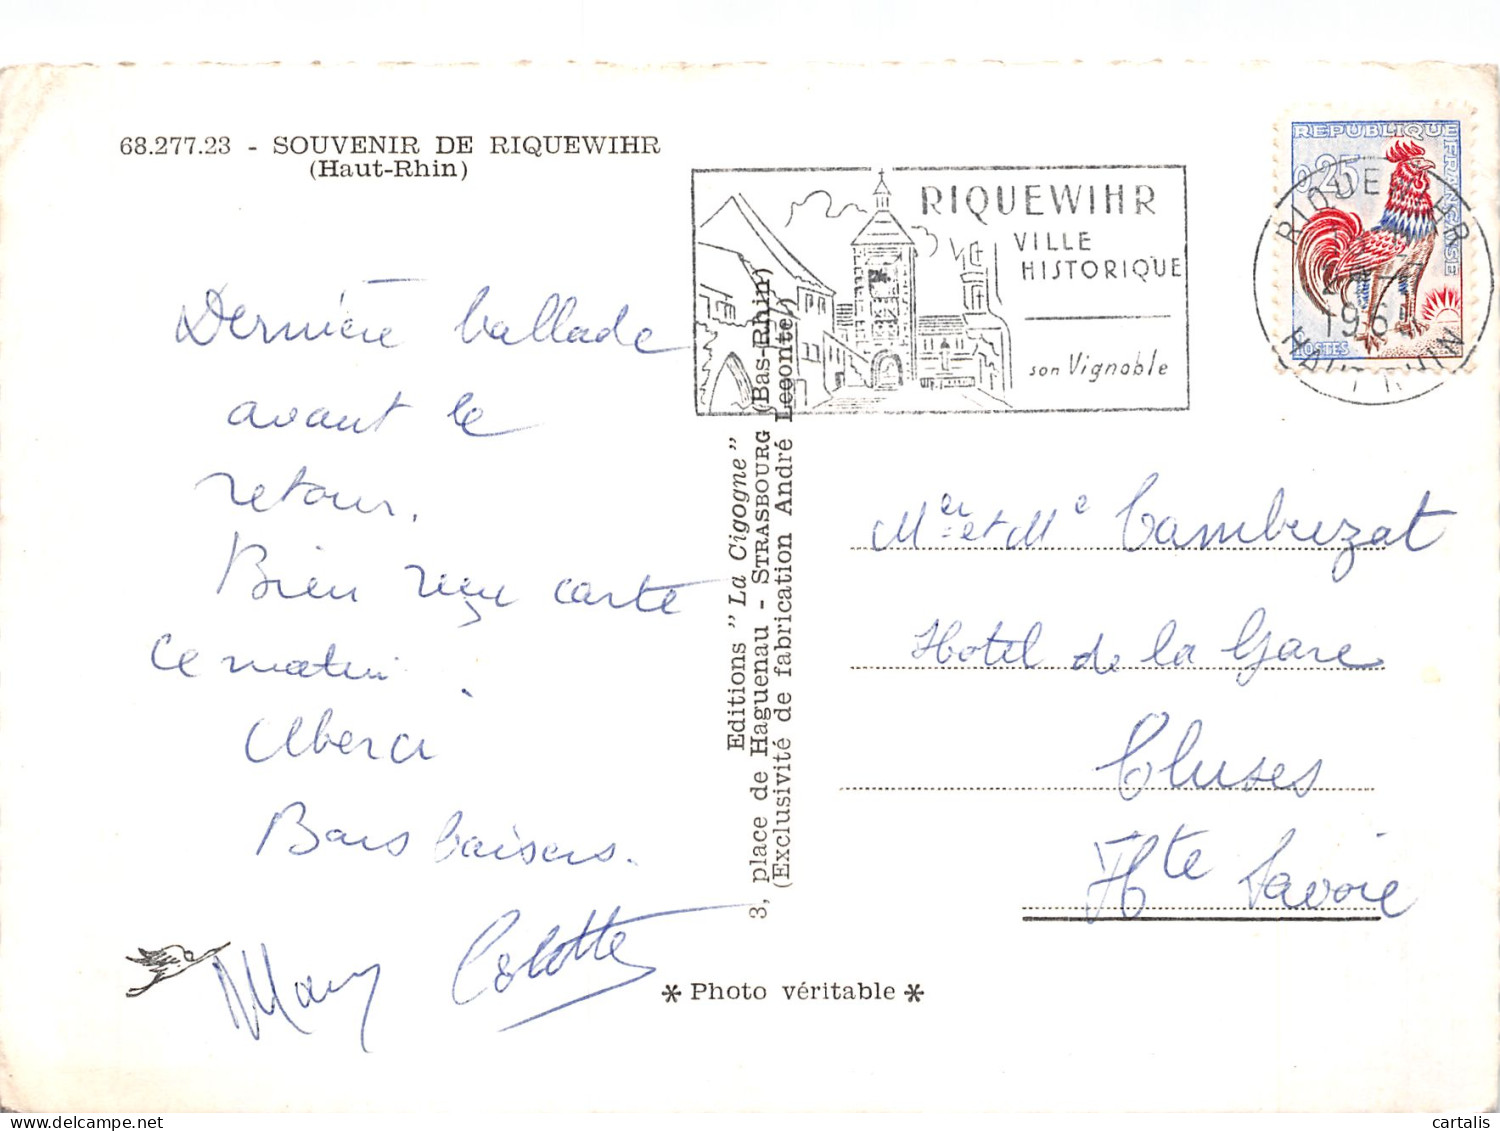 68.277.23 - SOUVENIR DE RIQUEWIHR
(Haut-Rhin)
Dernière ballade
avant le
retour.
Bien reçu carte
ce matin.
Merci
Bons baisers.
Colette
Editions "La Cigogne"
3, place de Haguenau - STRASBOURG (Bas-Rhin)
(Exclusivité de fabrication André Leconte)
* Photo véritable *
RIQUEWIHR
VILLE
HISTORIQUE
son Vignoble
REPUBLIQUE FRANÇAISE
0,25
POSTES
RIQUEWIHR
HAUT RHIN
Mer et Me Cambuzat
Hotel de la Gare
Cluses
Hte Savoie
cartalis